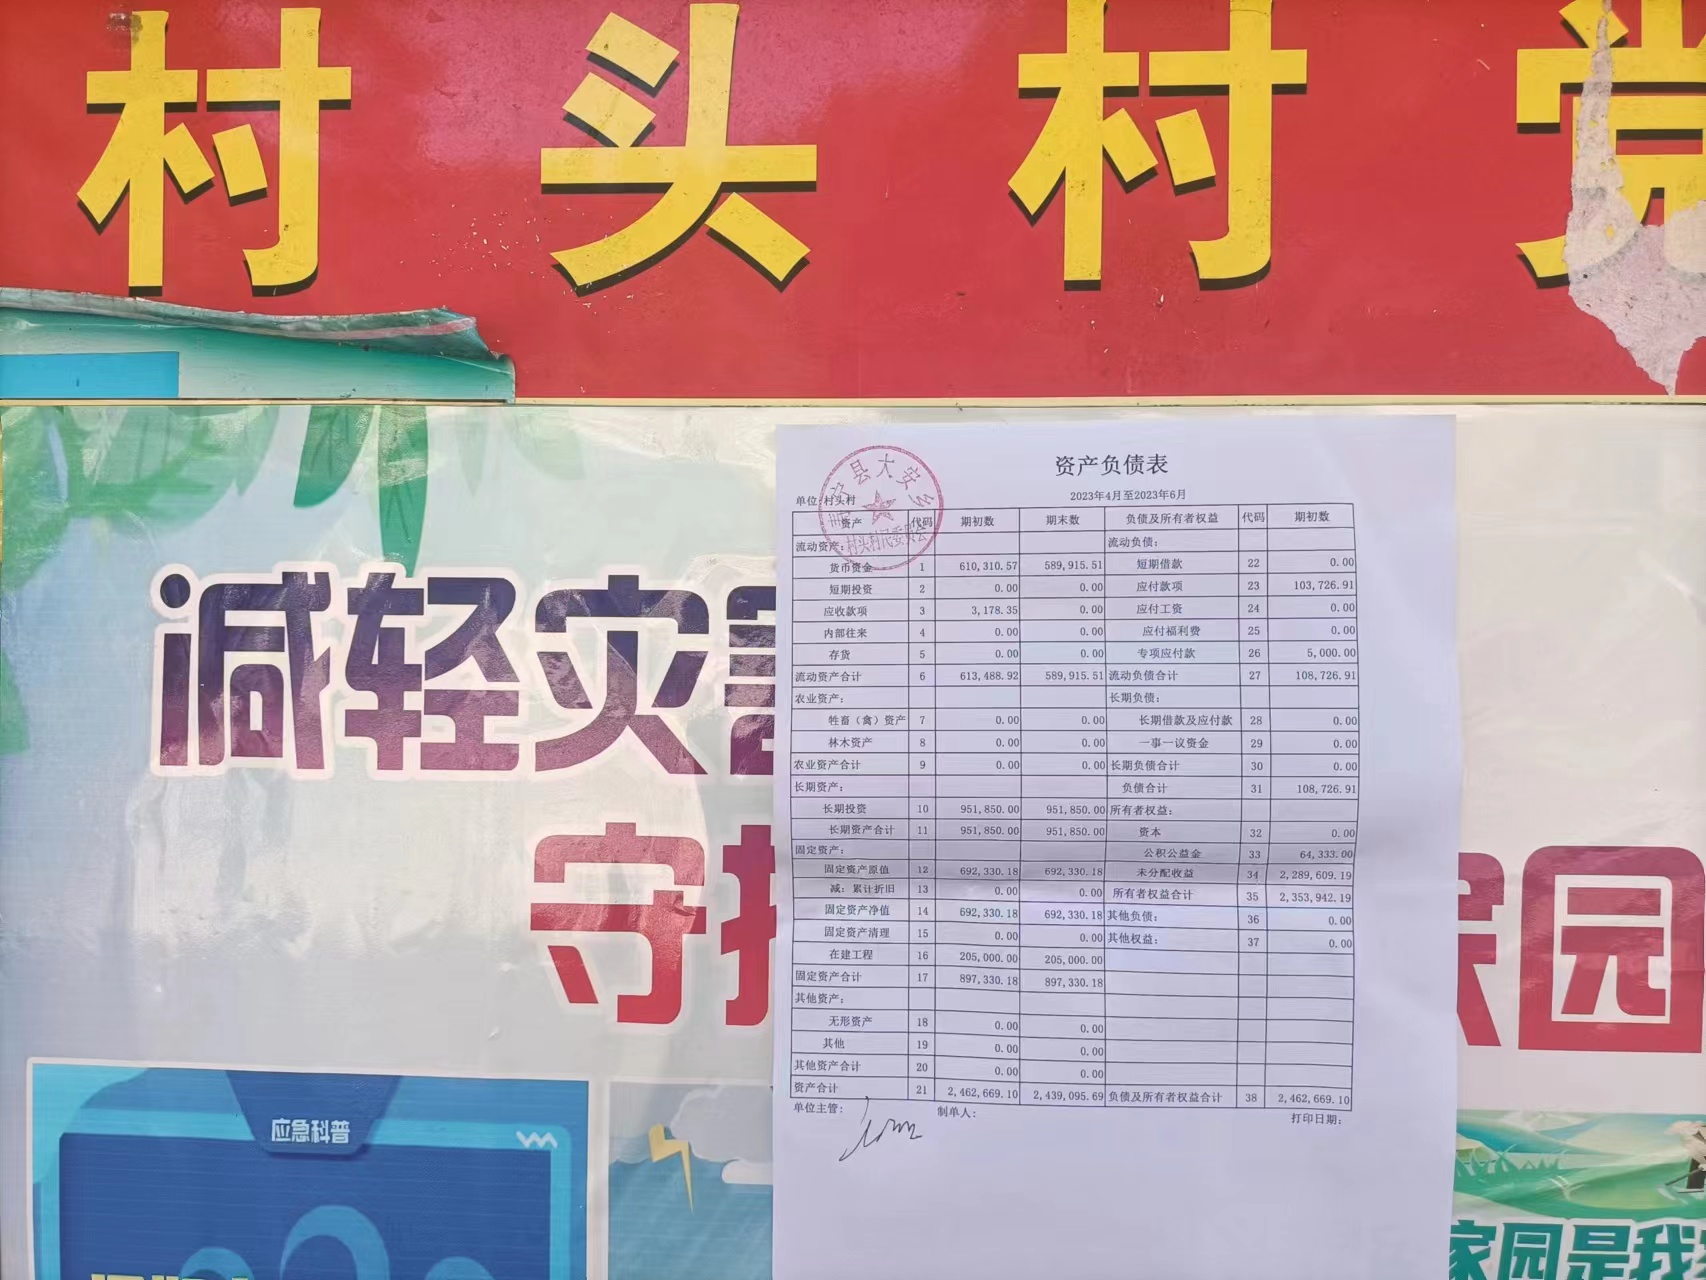 村头村
减轻灾
守
园
应急科普
家园是我
县大安乡
村头村民委员会
资产负债表
2023年4月至2023年6月
单位:村头村
资产 代码 期初数 期末数 负债及所有者权益 代码 期初数
流动资产: 流动负债:
货币资金 1 610,310.57 589,915.51 短期借款 22 0.00
短期投资 2 0.00 0.00 应付款项 23 103,726.91
应收款项 3 3,178.35 0.00 应付工资 24 0.00
内部往来 4 0.00 0.00 应付福利费 25 0.00
存货 5 0.00 0.00 专项应付款 26 5,000.00
流动资产合计 6 613,488.92 589,915.51 流动负债合计 27 108,726.91
农业资产: 长期负债:
牲畜（禽）资产 7 0.00 0.00 长期借款及应付款 28 0.00
林木资产 8 0.00 0.00 一事一议资金 29 0.00
农业资产合计 9 0.00 0.00 长期负债合计 30 0.00
长期资产: 负债合计 31 108,726.91
长期投资 10 951,850.00 951,850.00 所有者权益:
长期资产合计 11 951,850.00 951,850.00 资本 32 0.00
固定资产: 公积公益金 33 64,333.00
固定资产原值 12 692,330.18 692,330.18 未分配收益 34 2,289,609.19
减: 累计折旧 13 0.00 0.00 所有者权益合计 35 2,353,942.19
固定资产净值 14 692,330.18 692,330.18 其他负债: 36 0.00
固定资产清理 15 0.00 0.00 其他权益: 37 0.00
在建工程 16 205,000.00 205,000.00
固定资产合计 17 897,330.18 897,330.18
其他资产:
无形资产 18 0.00 0.00
其他 19 0.00 0.00
其他资产合计 20 0.00 0.00
资产合计 21 2,462,669.10 2,439,095.69 负债及所有者权益合计 38 2,462,669.10
单位主管: 制单人: 打印日期: